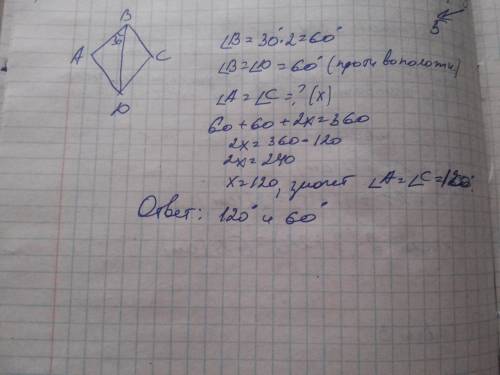 B
30°
A
C
D
∠B = 30°·2 = 60°
∠B = ∠D = 60° (противополож)
∠A = ∠C = ? (x)
60 + 60 + 2x = 360
2x = 360 - 120
2x = 240
x = 120, значит ∠A = ∠C = 120°.
Ответ: 120° и 60°